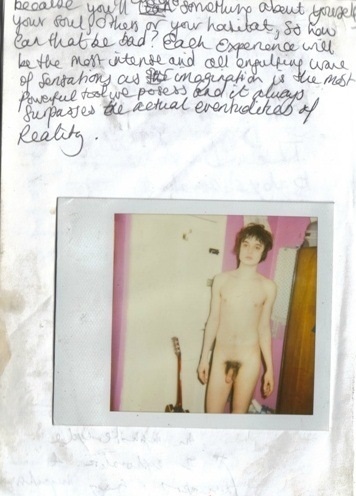 because you'll something about yourself
your soul, others or your habitat, So how
can that be bad? Each Experience will
be the most intense and all engulfing wave
of Sensations as imagination is the most
powerful tool we posess and it always
Surpasses the actual eventualities of
Reality.